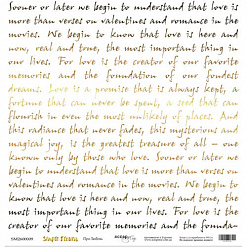 Sooner or later we begin to understand that love is
more than verses on valentines and romance in the
movies. We begin to know that love is here and
now, real and true, the most important thing in
our lives. For love is the creator of our favorite
memories and the foundation of our fondest
dreams. Love is a promise that is always kept, a
fortune that can never be spent, a seed that can
flourish in even the most unlikely of places. And
this radiance that never fades, this mysterious and
magical joy, is the greatest treasure of all - one
known only by those who love. Sooner or later we
begin to understand that love is more than verses
on valentines and romance in the movies. We
begin to know that love is here and now, real and
true, the most important thing in our lives. For
love is the creator of our favorite
memories and the founda-